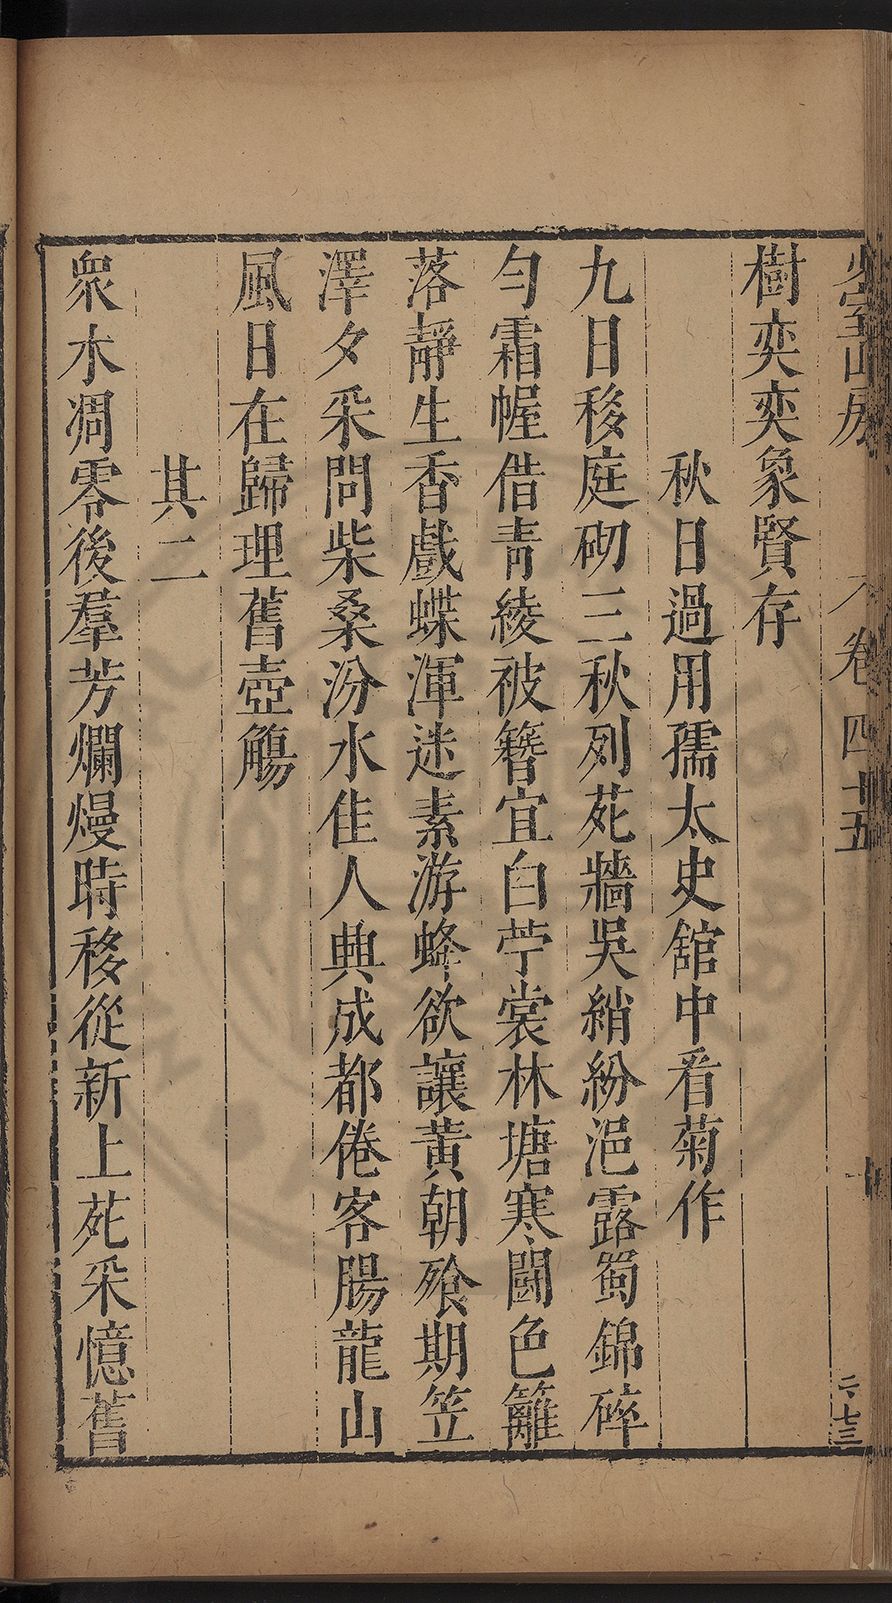 卷四十五
樹奕奕象賢存
秋日過用孺太史舘中看菊作
九日移庭砌三秋列苑牆吳綃紛浥露蜀錦碎
勻霜幄借青綾被簪宜白苧裳林塘寒鬪色籬
落靜生香戲蝶渾迷素游蜂欲讓黃朝飱期笠
澤夕采問柴桑汾水佳人興成都倦客腸龍山
風日在歸理舊壺觴
其二
衆木凋零後羣芳爛熳時移從新上苑采憶舊
二七三